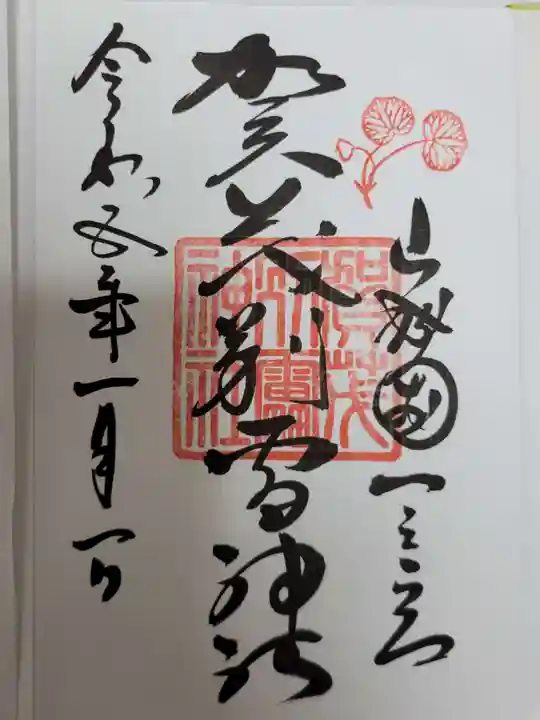 山城國一之宮
賀茂別雷神社
賀茂
別雷
神社
令和五年一月一日